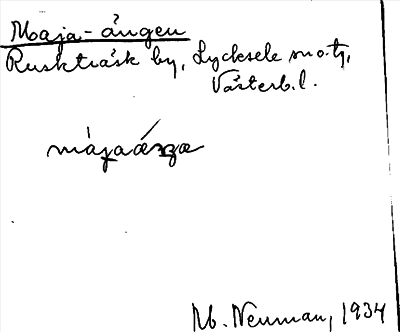 Maja-ängen
Ruskträsk by, Lycksele sn o. tg,
Västerb. l.
Nb. Neuman, 1934